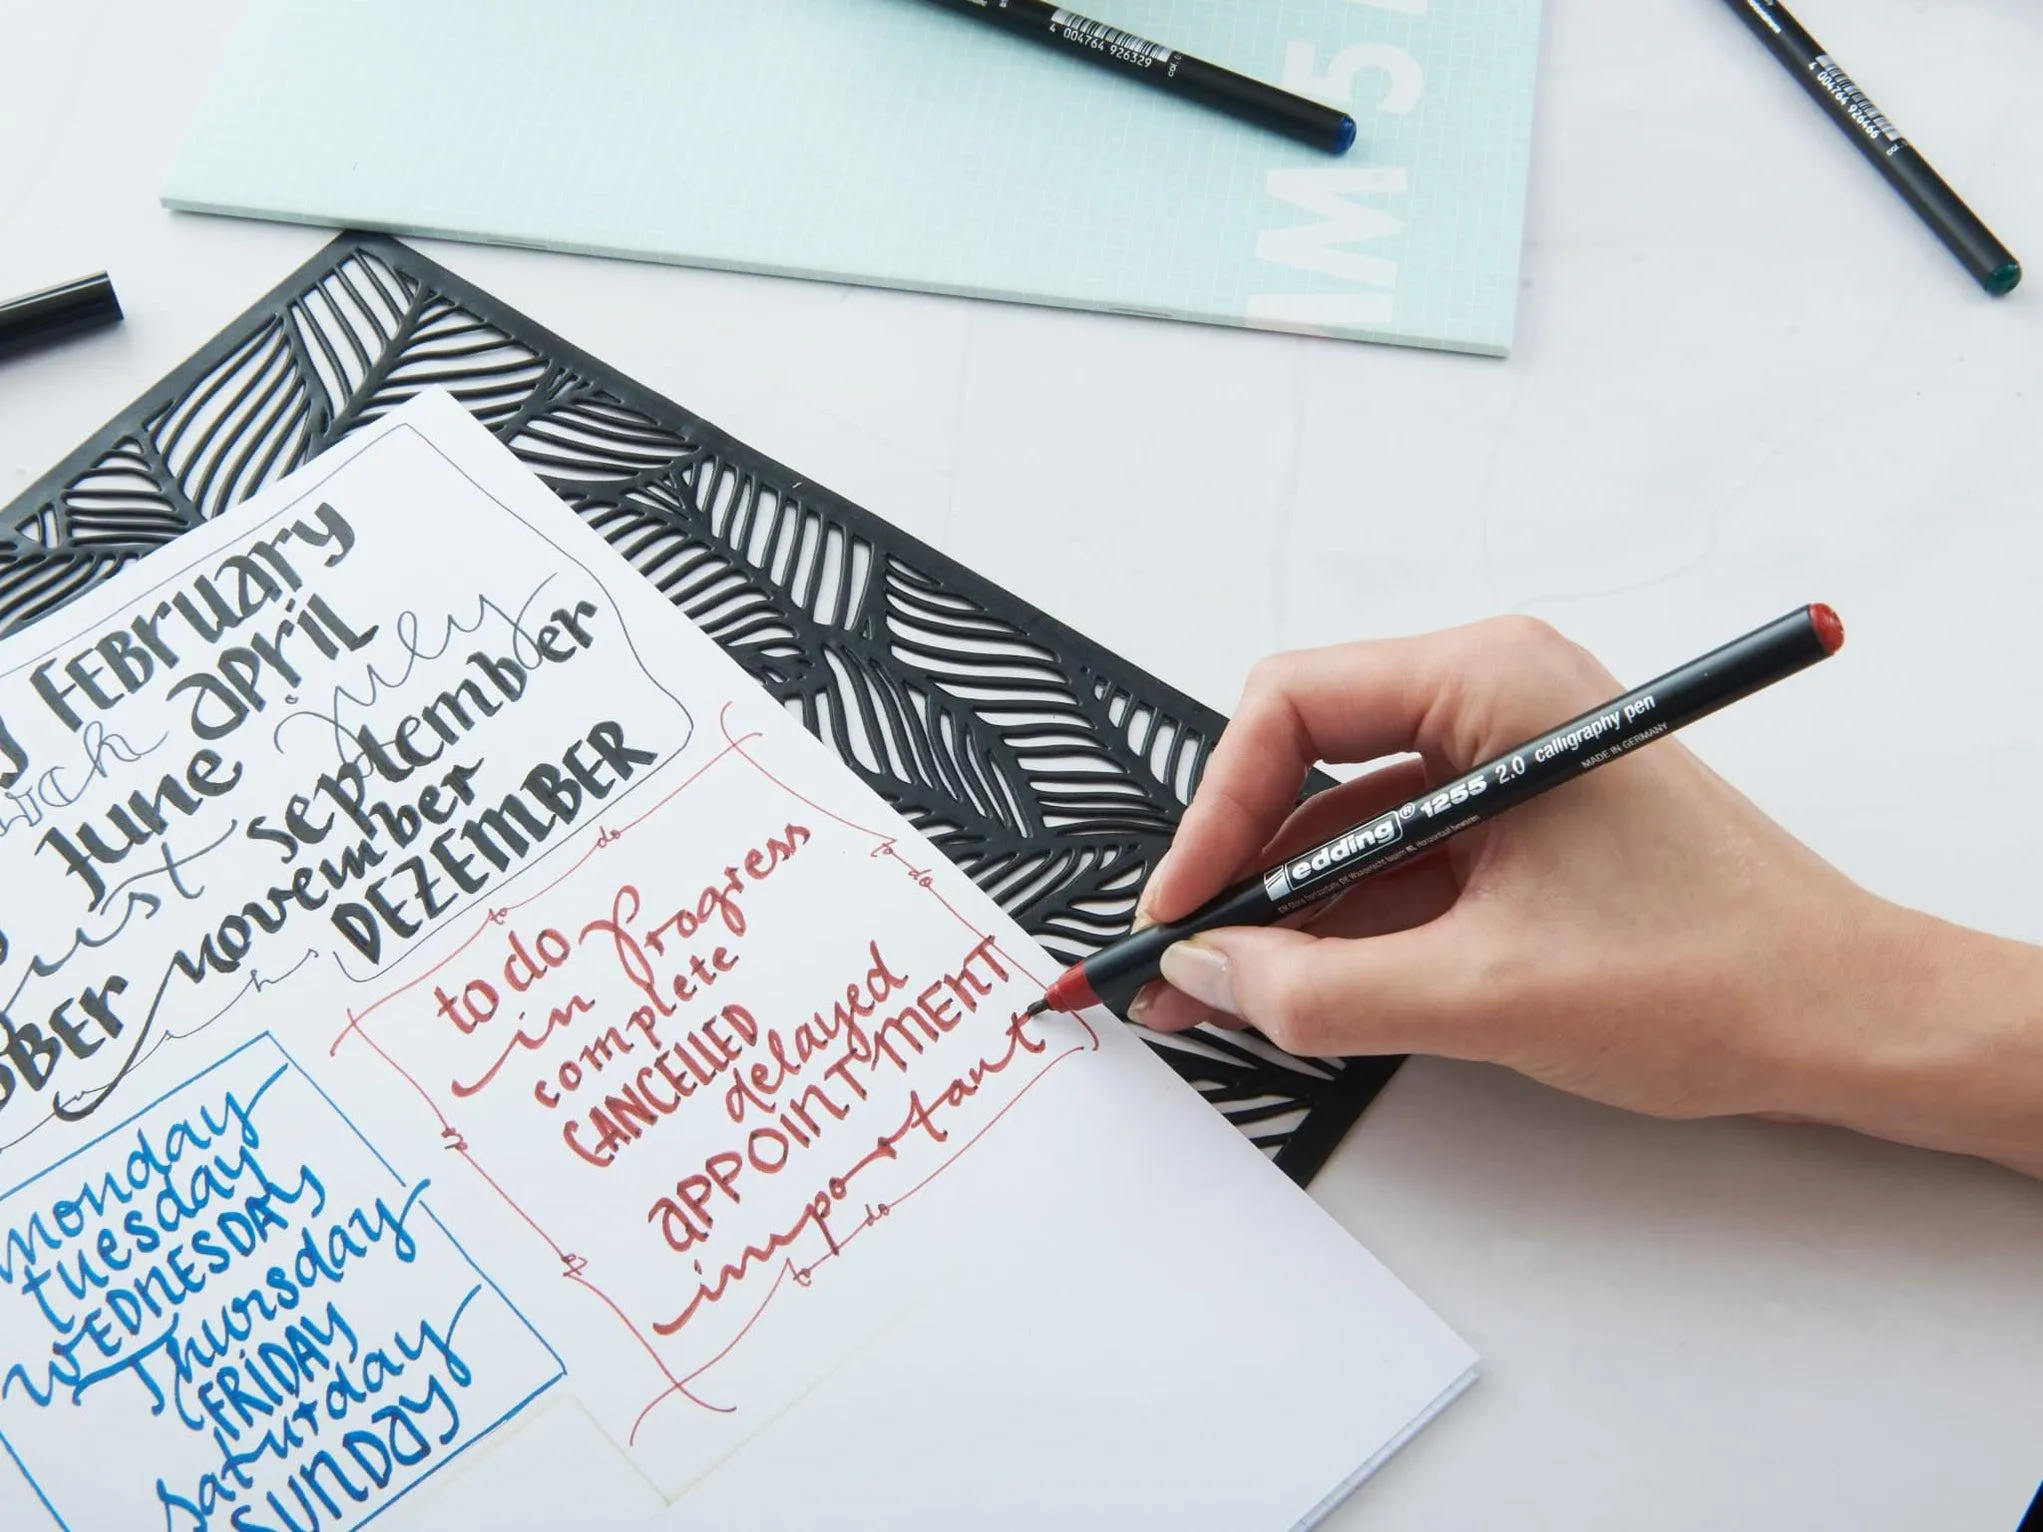 4 004764 926329
4 004764 926466
M 5
FEBruary
april
June july
september
november
DEZEMBER
to do
in progress
complete
CANCELLED
delayed
APPOINTMENT
important
to do
to do
monday
tuesday
WEDNESDAY
Thursday
FRIDAY
saturday
SUNDAY
edding® 1255 2.0 calligraphy pen
MADE IN GERMANY